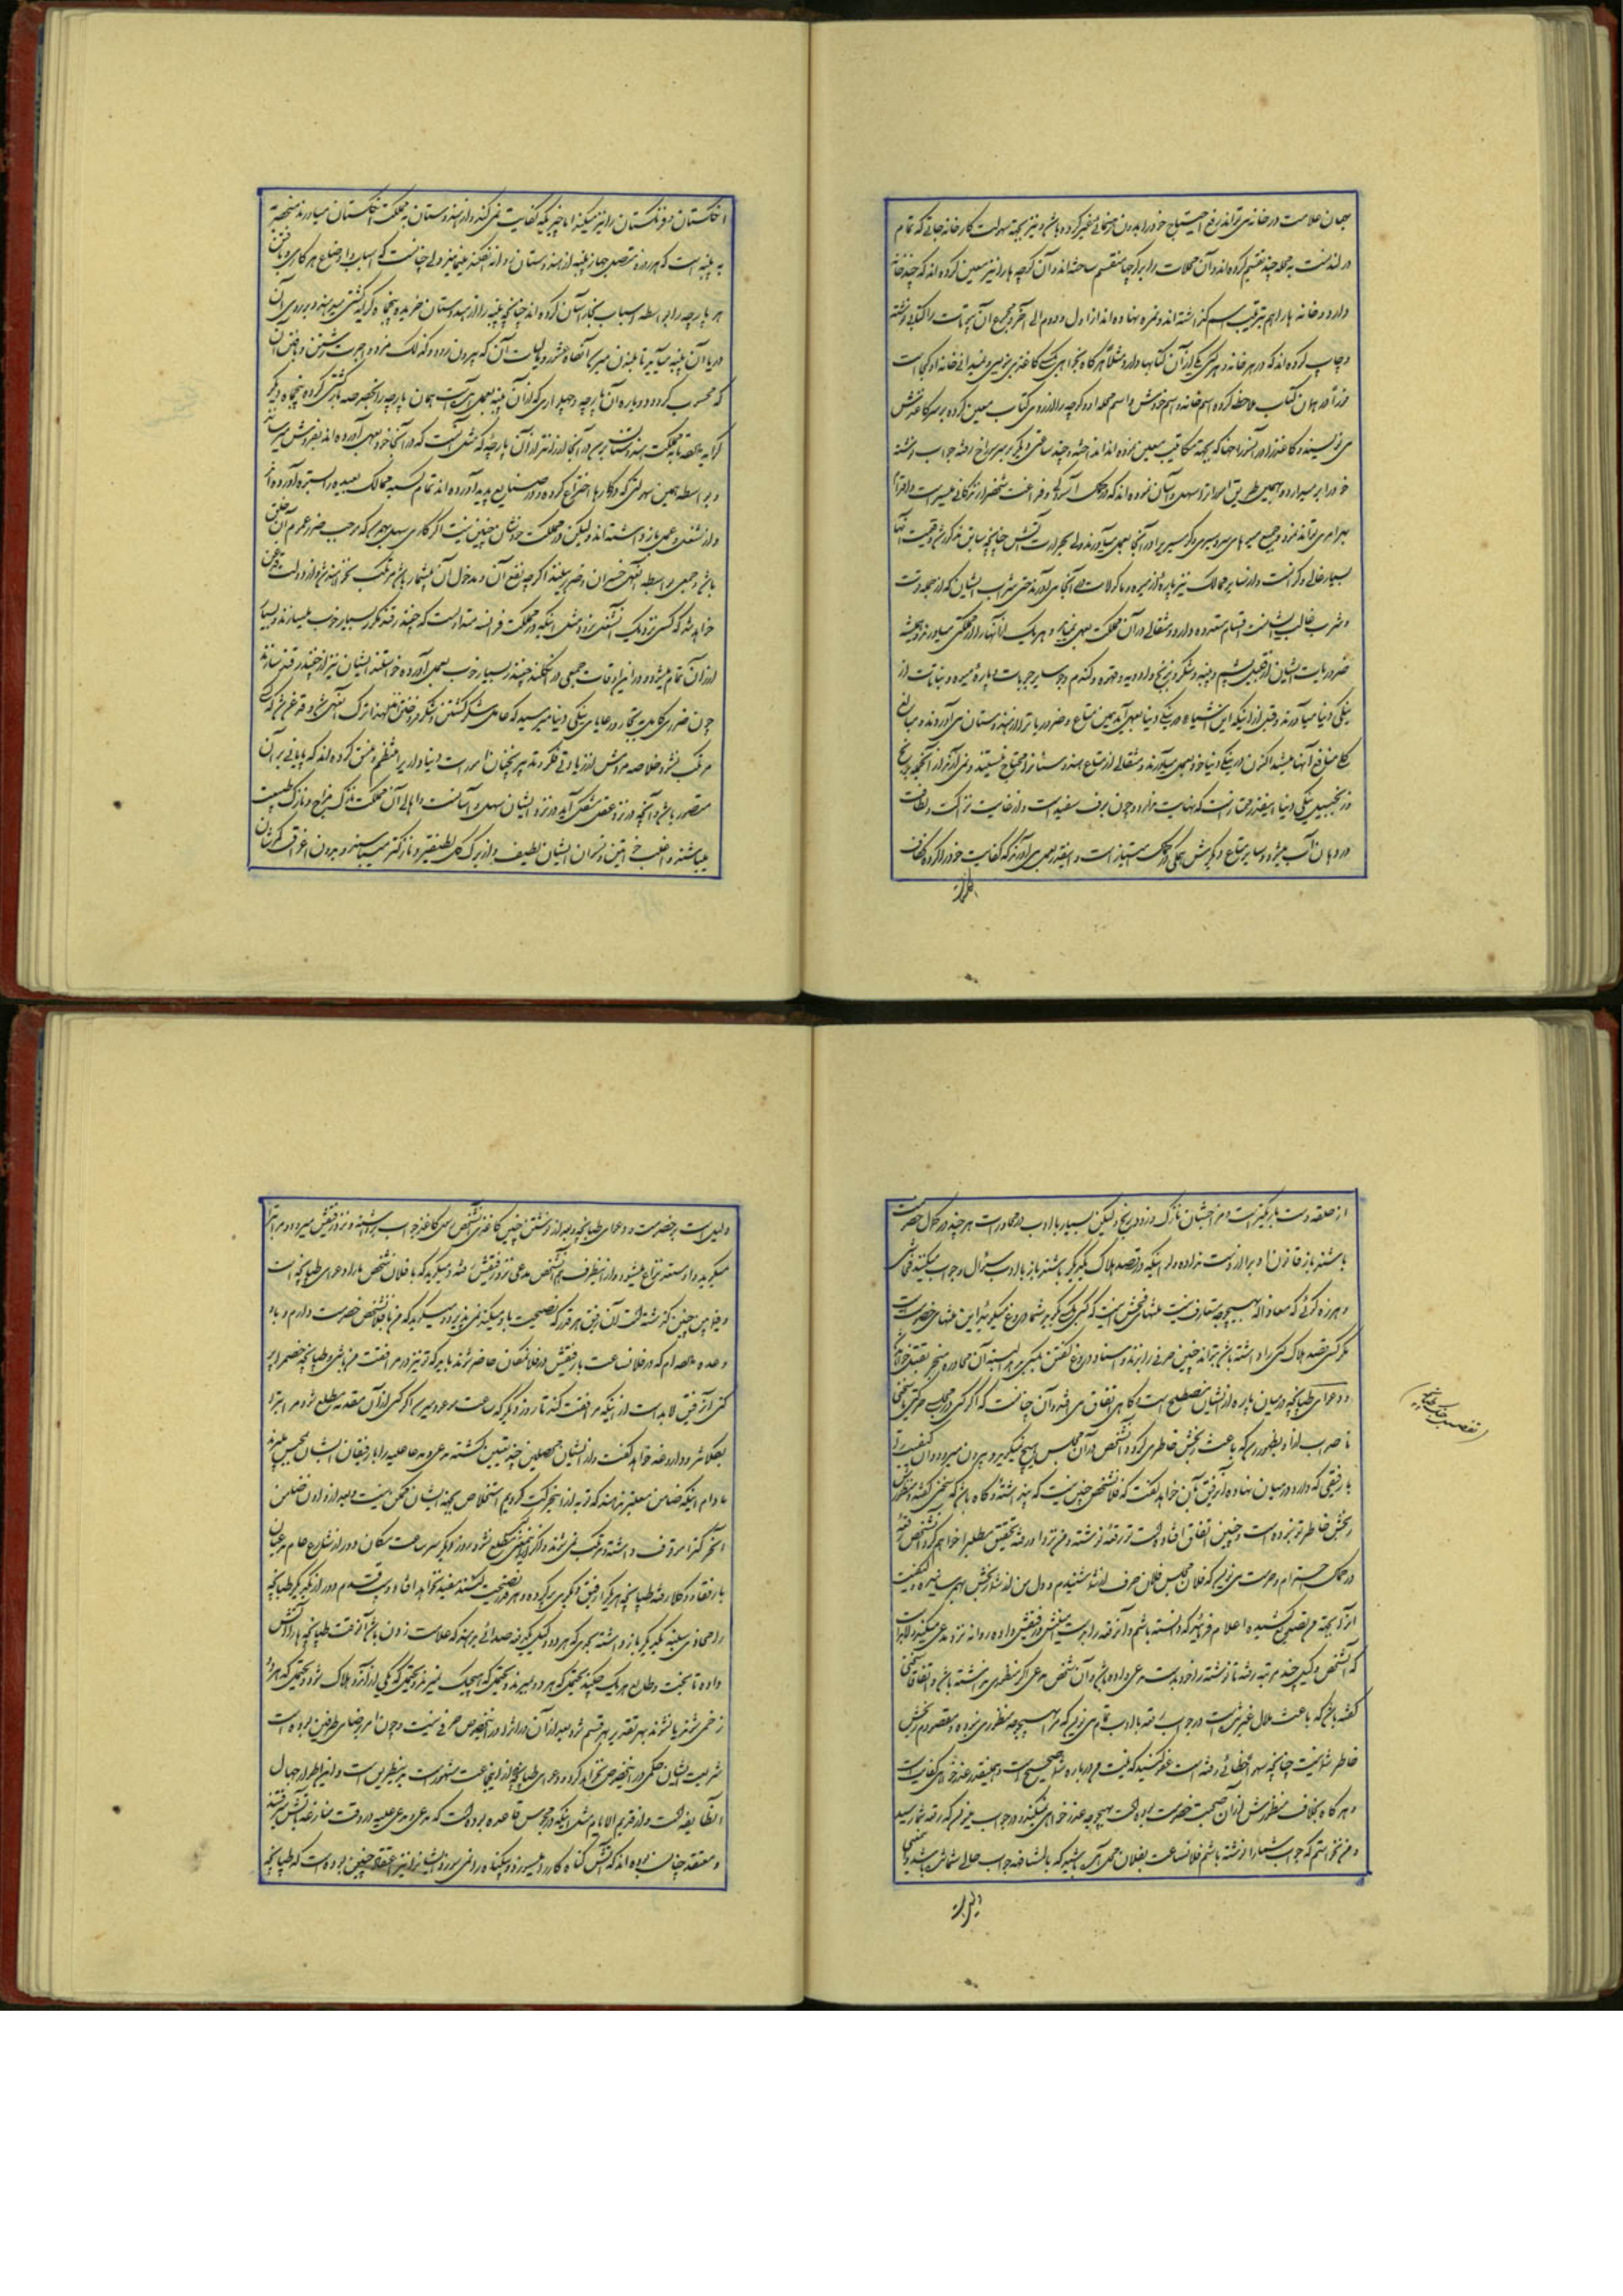 بهمان علامت در خانه می‌تواند رفع احتیاج خود را بدون رهنمائی غیر کرده باشد و نیز بجهة سهولت کار خانه جاتی که تمام
در لندنست به محله چند تقسیم کرده‌اند و آن محلات را بر کوچها منقسم ساخته‌اند و آن کوچه ها را نیز معین کرده‌اند که چند خانه
دارد و خانه ها را هم بترتیب اسم گذاشته‌اند و نمره نهاده‌اند از اول و دوم الی آخر و مجموع آن مراتب را کتابی نوشته
و چاپ کرده‌اند که در هر خانه و هر کسی یکی از آن کتابها دارد و مثلاً هر گاه بخواهی بکسی کاغذ بنویسی و نمیدانی خانه او کجا است
فوراً در همان کتاب ملاحظه کرده اسم خانه و اسم خودش و اسم محله او و کوچه را از روی کتاب معین کرده بر سر کاغذش
می‌نویسند و کاغذ را در آنزمان که بجهة مکاتیب معین نموده‌اند انداخته و چند ساعتی دیگر بر سر سراغ رفته جواب نوشته
خود را بر میدارد و بهمین طریق امورات را سهل و آسان نموده‌اند که در کمال آسودگی و فراغت شخص را زندگانی میسر است و اقدام
بهر امری می‌تواند نمود و جمیع میوه‌های سردسیری و گرمسیری را در آنجا بعمل می‌آورند ولی بحرارت آتش چنانچه سابق مذکور شد و قیمت آنها
بسیار غالی و گرانست و از سایر ممالک نیز پاره از میوه و ماکولات به آنجا می‌آورند حتی شراب ایشان که از جمله قوت
و شرب غالب ایشانست اقسام متعدده دارد و مثقالی در آن مملکت بعمل نمی‌آید و هر یک از آنها را از مملکتی میاورند و همیشه
ضروریات ایشان از قبیل پشم و پنبه و شکر و برنج و ادویه و قهوه و گندم و جو و سایر حبوبات و پاره میوه و نباتات از
ینگی دنیا میاورند و قبل از اینکه این اشیاء در ینگی دنیا بعمل آید همین متاع و ضروریات را از هندوستان می‌آوردند و مبالغ
کلی منافع آنها میشد اکنون در ینگی دنیا خود بعمل میاورند و مثقالی از متاع هندوستان را محتاج نیستند و نمی‌آورند از آنجمله برنج
و زنجبیل ینگی دنیا اینقدر ممتاز است که نهایت ندارد و چون برف سفید است و از غایت نزاکت و لطافت
در دهان آب میشود و سایر متاع دیگرش همگی در کمال امتیاز است و اینقدر بعمل می‌آورند که کفایت خود را کرده و کفاف
انگلستان
انگلستان و فرنگستان را نیز میکند اما چیزیکه کفایت نمی‌کند و از هندوستان به مملکت انگلستان میاورند منحصر
به پنبه است که هر روزه متصل جهاز پنبه از هندوستان روانه انگلند مینمایند ولی چنانست که اسباب و اوضاع هر کاری و بافتن
هر پارچه را بواسطه اسباب بخار آسان کرده‌اند چنانچه پنبه را از هندوستان خریده پنجاه کرایه کشتی میدهند و بر روی آن
دریا آن پنبه میآید تا به لندن میرسد آنگاه عشور و مالیات آن که بیرون رود و کذلک مزد و اجرت رشتن و بافتن آن
که محسوب گردد و دوباره آن پارچه و چلواری که از آن پنبه بعمل می‌آید همان پارچه را بخصوصه بار کشتی کرده پنجاه دیگر
کرایه بدهد تا به مملکت هندوستان برسد در آنجا ارزانتر از آن پارچه که مثل آنست که در آنجا خود بعمل آورده‌اند بفروش میرسانند
و بواسطه همین سهولتی که در کارها اختراع کرده و در صنایع پدید آورده‌اند تمام کسبه ممالک بعیده را بستوه آورده‌اند
و از شغل و عمل باز داشته‌اند ولیکن در مملکت خودشان چنین نیست اگر کاری سهل بعمل که موجب ضرر عموم آن خلق
باشد و جمعی بواسطه آنعمل خسران و ضرر ببینند اگر چه نفع آن و مدخول آن بیشمار باشد مرتکب نخواهند شد و از دولت قدغن
خواهد شد که کسی نزدیک آنشغل نرود مثل اینکه در مملکت فرانسه متداولست که چغندر قند مکرر بسیار خوب میسازند و بسیار
ارزان تمام میشود و در این اوقات جمعی در انگلند چغندر بسیار خوب بعمل آورده خواستند ایشان نیز از چغندر قند بسازند
چون ضرر کلی به تجار و رعایای ینگی دنیا میرسید که عامل شکر کشتن و شکر فروختن‌اند لهذا ترک آنعمل شد و قدغن شد که کسی
مرتکب نشود خلاصه مردمش از زیادتی فکر و تدبیر بخیابان امور است دنیاداریرا منظم و متسق کرده‌اند که پایانی بر آن
متصور باشد و آنچه در نزد عقل مشکل آید در نزد ایشان سهل و آسانست و اهالی آن مملکت نازک مزاج و نازک طبیعت
میباشند و اغلب خواتین و نسوان ایشان لطیف و از برگ گل لطیفتر و نازکتر میباشند و بدون اغراق گوشتشان
از حلقه دست باریکتر است و مزاجشان نازک و زود رنج ولیکن بسیار با ادب و محاوره است هر چند در کمال خصومت
باشند باز قانون ادبرا از دست نداده ولو اینکه در قصد هلاک یکدیگر باشند باز با ادب سئوال و جواب میکنند فحاشی
و هرزه گوئی که معاذالله بهیچوجه متعارف نیست منتهای فحش اینست که کسی بکسی بگوید شما دروغ میگوئید این منتهای خصومت است
مگر کسی قصد هلاک کسی را داشته باشد بتواند چنین حرفی را بزند و اسناد دروغ گفتن بکسی بدهد البته آن محاوره منجر بقتل خواهد شد
و دعوای طپانچه در میان پاره از ایشان مصطلح است و گاهی اتفاق می‌افتد و آن چنانست که اگر کسی در مجلس حرکتی یا سخنی
ناصواب از او بظهور رسد که باعث رنجش خاطری گردد آنشخص در آن مجلس هیچ نمیگوید و بیرون میرود و آن کیفیت را
با رفیقی که دارد در میان نهاده آنرفیق بآن خواهد گفت که فلانشخص چنین نیست که پنداشته و گاه باشد که سخنی گفته و منظورش
رنجش خاطر تو نبوده است و چنین اتفاق افتاده است تو رقعه نوشته و من نزد او رفته تحقیق مطلب را خواهم کرد آنشخص رقعه
در کمال احترام و حرمت می‌نویسد که فلان مجلس فلان حرف از شما شنیدم و دل من از شما رنجش بهم رسانیده و کیفیت
او را بجهة من تفصیل کشیده اعلام فرمائید که دانسته باشم و آنرقعه را بدست مبلغش و رفیقش داده روانه نزد مدعی میکند و لابد است
که آنشخص وکیل چند مرتبه رقعه را نوشته را خود بدست مدعی داده باشد و آن شخص مدعی اگر منظوری نداشته باشد و اتفاقاً سخنی
گفته باشد که باعث ملال غیر شده است در جواب رقعه با ادب تمام می‌نویسد که مرا بهیچوجه منظوری نبوده و مقصودم رنجش
خاطر شما نیست چنانچه سهو و خطائی رفته است عفو کنید که نیت من درباره شما صحیح است و همینقدر عذرخواهی کفایت است
و هر گاه بخلاف منظورش از آن صحبت خصومت بوده است بهیچوجه عذرخواهی نمیکند و در جواب مینویسد که رقعه شما رسید
و من نخواستم که جواب شما را نوشته باشم فلانساعت بفلان محل آمده باشید که بالمشافهه جواب حالی شما می‌شود و همینمعنی
دلیل است
(تفصیل جنگ طپانچه)
دلیل است بر خصومت و دعوای طپانچه و بعد از نوشتن چنین کاغذی آنشخص رسول کاغذ جواب برداشته و نزد رفیقش میرود و مراتب را
میگوید و از سته نزاع میشود و از اینطرف هم آنشخص مدعی نزد رفیقش رفته و میگوید که با فلان شخص ما را دعوای طپانچه است
و فیمابین چنین گذشته است آن رفیق هر قدر که نصیحت باو میکند نمی‌پذیرد و میگوید که من با فلانشخص خصومت دارم و باو
وعده داده‌ام که در فلانساعت با رفیقش در فلانمکان حاضر شوند باید که تو نیز در مرافقت من باشی و طپانچه خصم را پر
کنی آنرفیق لابد است از اینکه مرافقت کند تا روز دیگر که ساعت موعود برسد اگر کسی از آن مقدمه مطلع شود مراتب را
بعکلا شد و داروغه خواهد گفت و از ایشان محصلین چند تعیین گشته مدعی و مدعا علیه را با رفیقان ایشان بحبس میبرند
مادام اینکه ضامن معتبر ندهند که توبه از اینحرکت کردیم استخلاص بجهة ایشان ممکن نیست و بعد از دادن ضامن
آنحرکت را موقوف داشته و مرتکب نمی‌شوند و اگر کسی مطلع نشود روز دیگر سر ساعت مکان دور از شارع عام مدعیان
با رفقاء و وکلا رفته طپانچه هر یک را رفیق دیگری پر کرده و هر قدر نصیحت کنند مفید نخواهد افتاد و بیست قدم دور از یکدیگر طپانچه
را محاذی سینه یکدیگر باز داشته بنحوی که هر دو وکیل یکدفعه صدائی بدهند که علامت زدن باشد آنوقت طپانچه ها را آتش
داده تا بخت و طالع هر یک چه کند یحتمل که هر دو میرند و یحتمل که هیچیک نمیرند و یحتمل که یکی از آندو هلاک شود و یحتمل که هر دو
زخمی شوند یا نشوند بهر تقدیر بهر قسم شود بعد از آن دیوان را در آنخصوص حرفی نیست و چون امر و رضای طرفین بوده است
شریعت ایشان حکمی در اینخصوص نخواهد کرد و دعوای طپانچه در اینجماعت مشهور است بدینطریق است و این اطوار جهال
آنطایفه است و از قدیم الایام مثل اینکه در مجوس قاعده بوده است که مدعی و مدعی علیه در وقت منازعه بآتش میرفتند
و معتقد چنان بوده‌اند که آتش گناه کار را میسوزد و بیگناه را نمی‌سوزد ایشانرا نیز اعتقاد چنین بوده است که طپانچه